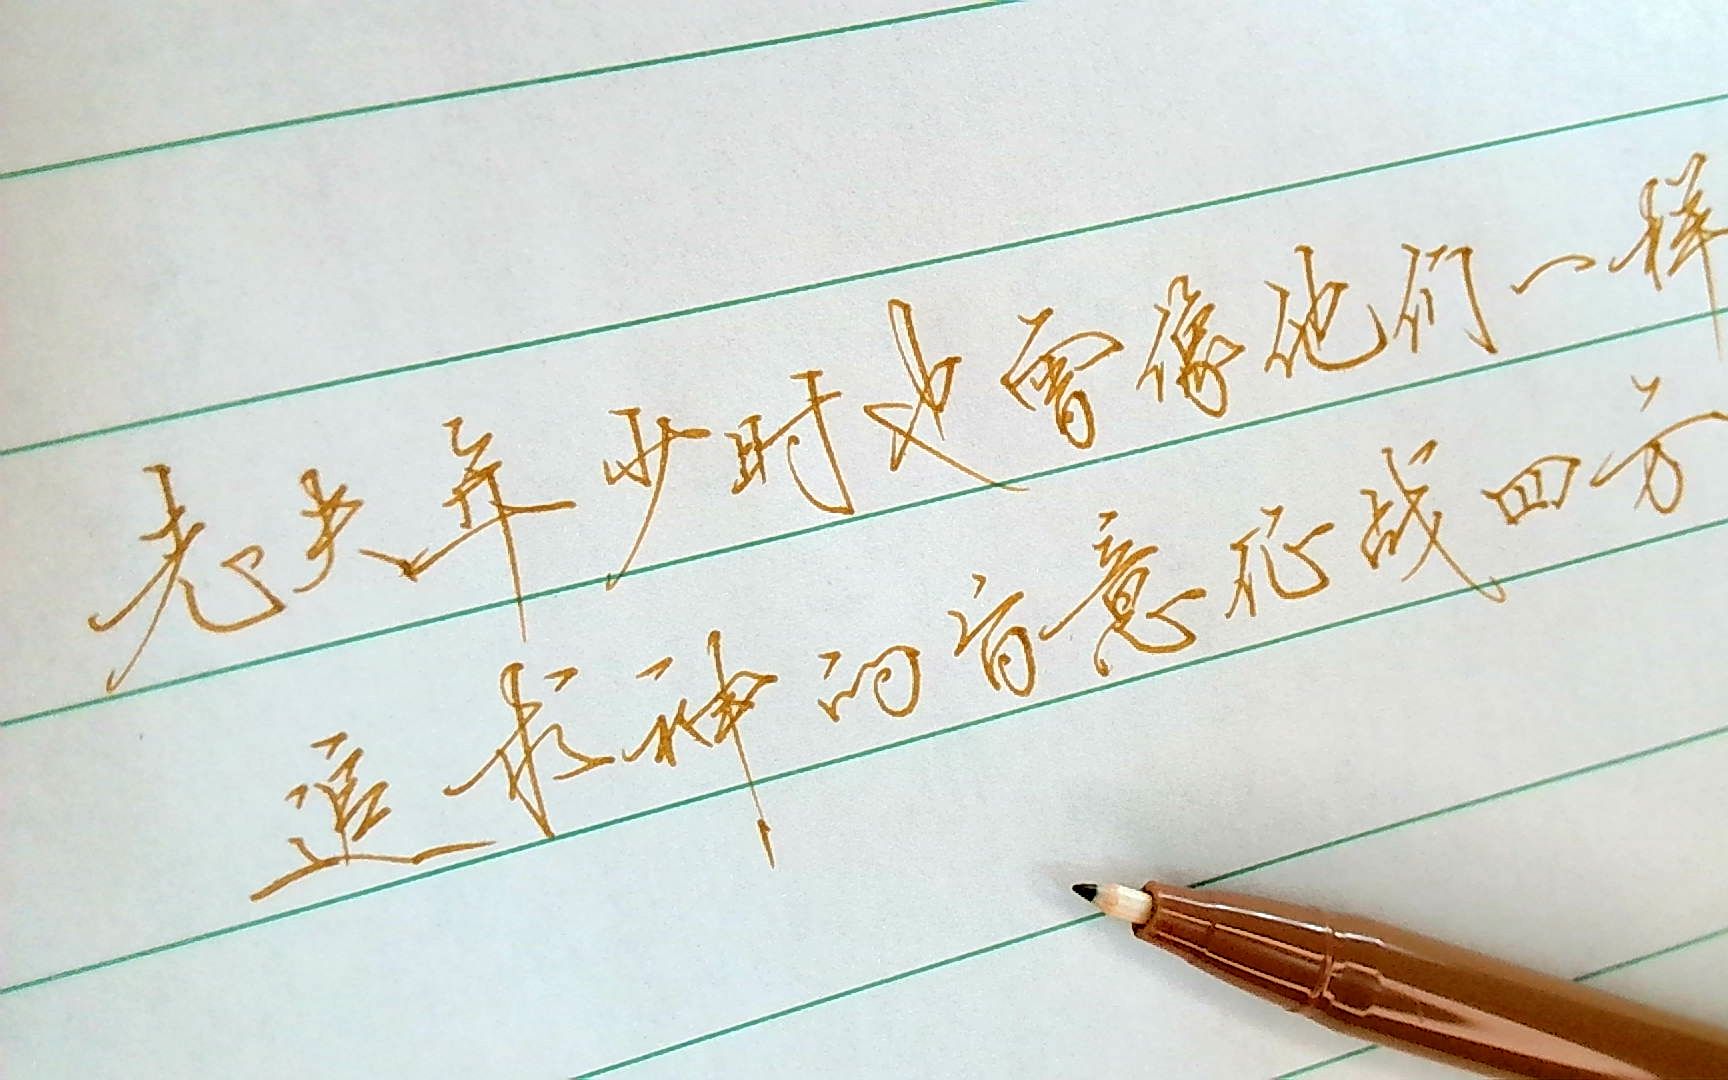 老夫年少时也曾像他们一样
追求神的旨意征战四方